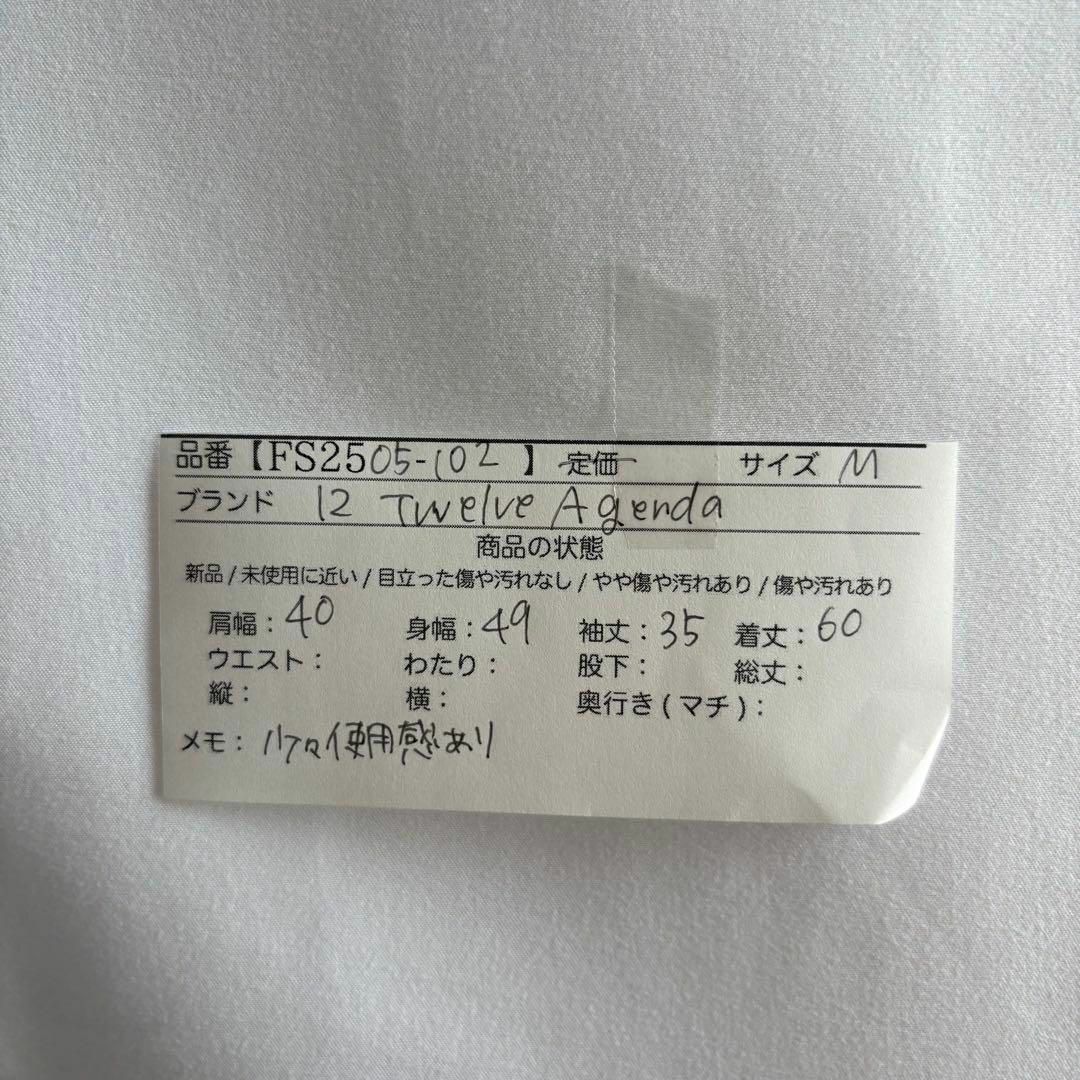 品番【FS2505-102 】 定価 サイズ M
ブランド 12 Twelve Agenda
商品の状態
新品 / 未使用に近い / 目立った傷や汚れなし / やや傷や汚れあり / 傷や汚れあり
肩幅：40 身幅：49 袖丈：35 着丈：60
ウエスト： わたり： 股下： 総丈：
縦： 横： 奥行き ( マチ )：
メモ： 使用感あり